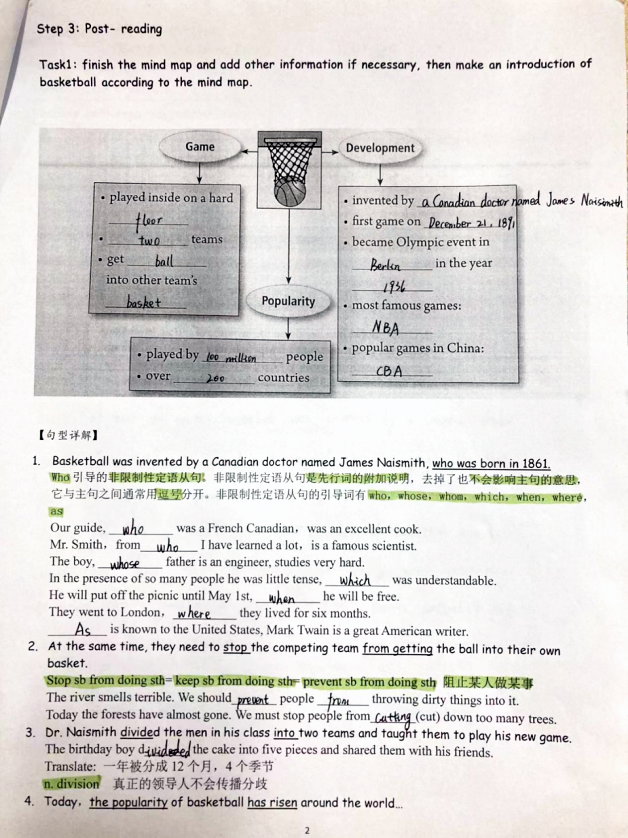 Step 3: Post- reading
Task1: finish the mind map and add other information if necessary, then make an introduction of
basketball according to the mind map.
Game
Development
• played inside on a hard
floor
• two teams
• get ball
into other team's
basket
Popularity
• played by 100 million people
• over 200 countries
• invented by a Canadian doctor named James Naismith
• first game on December 21, 1891
• became Olympic event in
Berlin in the year
1936
• most famous games:
NBA
• popular games in China:
CBA
【句型详解】
1. Basketball was invented by a Canadian doctor named James Naismith, who was born in 1861.
Who 引导的非限制性定语从句。非限制性定语从句是先行词的附加说明，去掉了也不会影响主句的意思，
它与主句之间通常用逗号分开。非限制性定语从句的引导词有 who, whose, whom, which, when, where,
as
Our guide, who was a French Canadian, was an excellent cook.
Mr. Smith, from who I have learned a lot, is a famous scientist.
The boy, whose father is an engineer, studies very hard.
In the presence of so many people he was little tense, which was understandable.
He will put off the picnic until May 1st, when he will be free.
They went to London, where they lived for six months.
As is known to the United States, Mark Twain is a great American writer.
2. At the same time, they need to stop the competing team from getting the ball into their own
basket.
Stop sb from doing sth= keep sb from doing sth= prevent sb from doing sth 阻止某人做某事
The river smells terrible. We should prevent people from throwing dirty things into it.
Today the forests have almost gone. We must stop people from cutting (cut) down too many trees.
3. Dr. Naismith divided the men in his class into two teams and taught them to play his new game.
The birthday boy divided the cake into five pieces and shared them with his friends.
Translate: 一年被分成 12 个月，4 个季节
n. division 真正的领导人不会传播分歧
4. Today, the popularity of basketball has risen around the world...
2